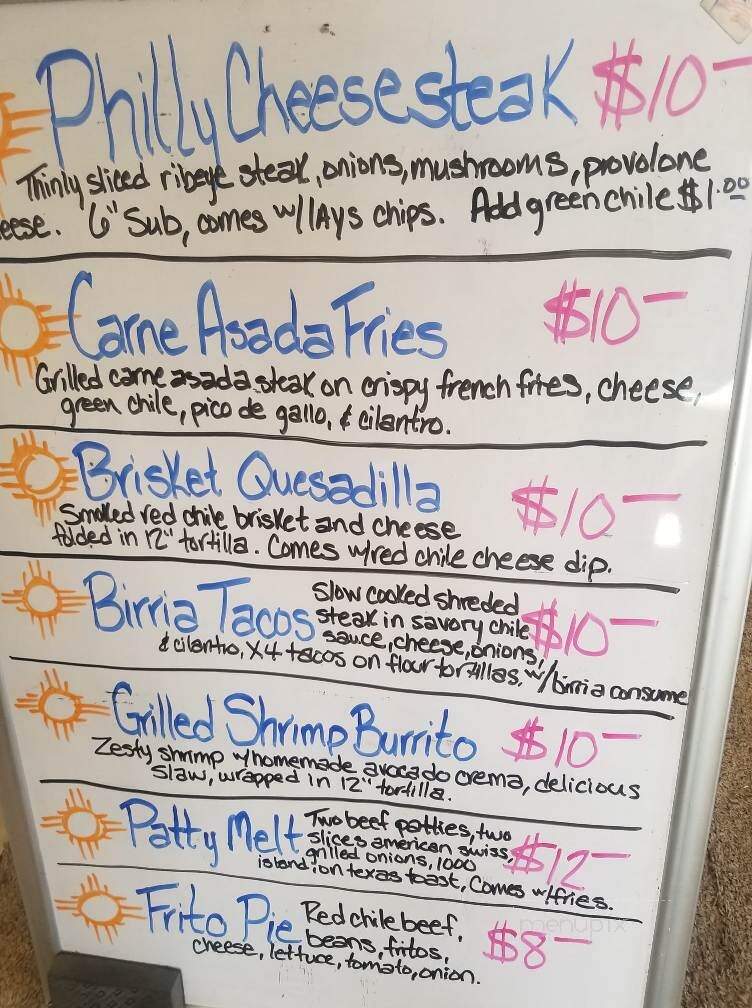 Philly Cheesesteak $10-
Thinly sliced ribeye steak, onions, mushrooms, provolone
eese. 6" Sub, comes w/lAys chips. Add green chile $1.00
Carne Asada Fries $10-
Grilled carne asada steak on crispy french fries, cheese,
green chile, pico de gallo, & cilantro.
Brisket Quesadilla $10-
Smoked red chile brisket and cheese
folded in 12" tortilla. Comes w/red chile cheese dip.
Birria Tacos $10-
Slow cooked shreded
steak in savory chile
sauce, cheese, onions,
& cilantro, x4 tacos on flour tortillas, w/birria consume
Grilled Shrimp Burrito $10-
Zesty shrimp w/homemade avocado crema, delicious
Slaw, wrapped in 12" tortilla.
Patty Melt $12-
Two beef patties, two
slices american swiss,
grilled onions, 1000
island, on texas toast, Comes w/fries.
Frito Pie $8-
Red chile beef,
beans, fritos,
cheese, lettuce, tomato, onion.
menupix